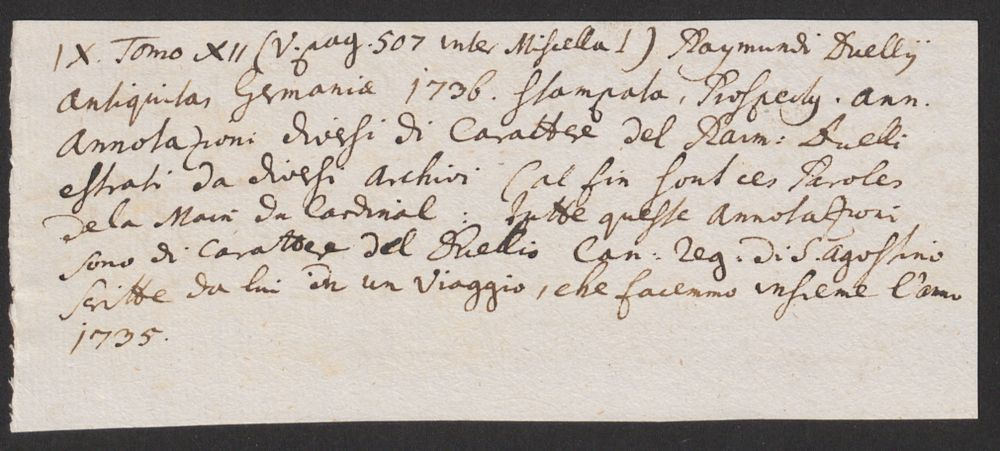 IX. Tomo XII (V. pag. 507 inter Miscella I) Raymundi Duellij
Antiquitas Germaniæ 1736. Stampata, Prospecty. ann.
Annotazioni diversi di Carattere del Raim: Duelli
estrati da diversi Archivi (al fin sont ces Paroles
dela Main du Cardinal: tutte queste Annotazioni
sono di Carattere del Duellio Can: Reg: di S. Agostino
scritte da lui in un Viaggio, che facemmo insieme l'anno
1735.